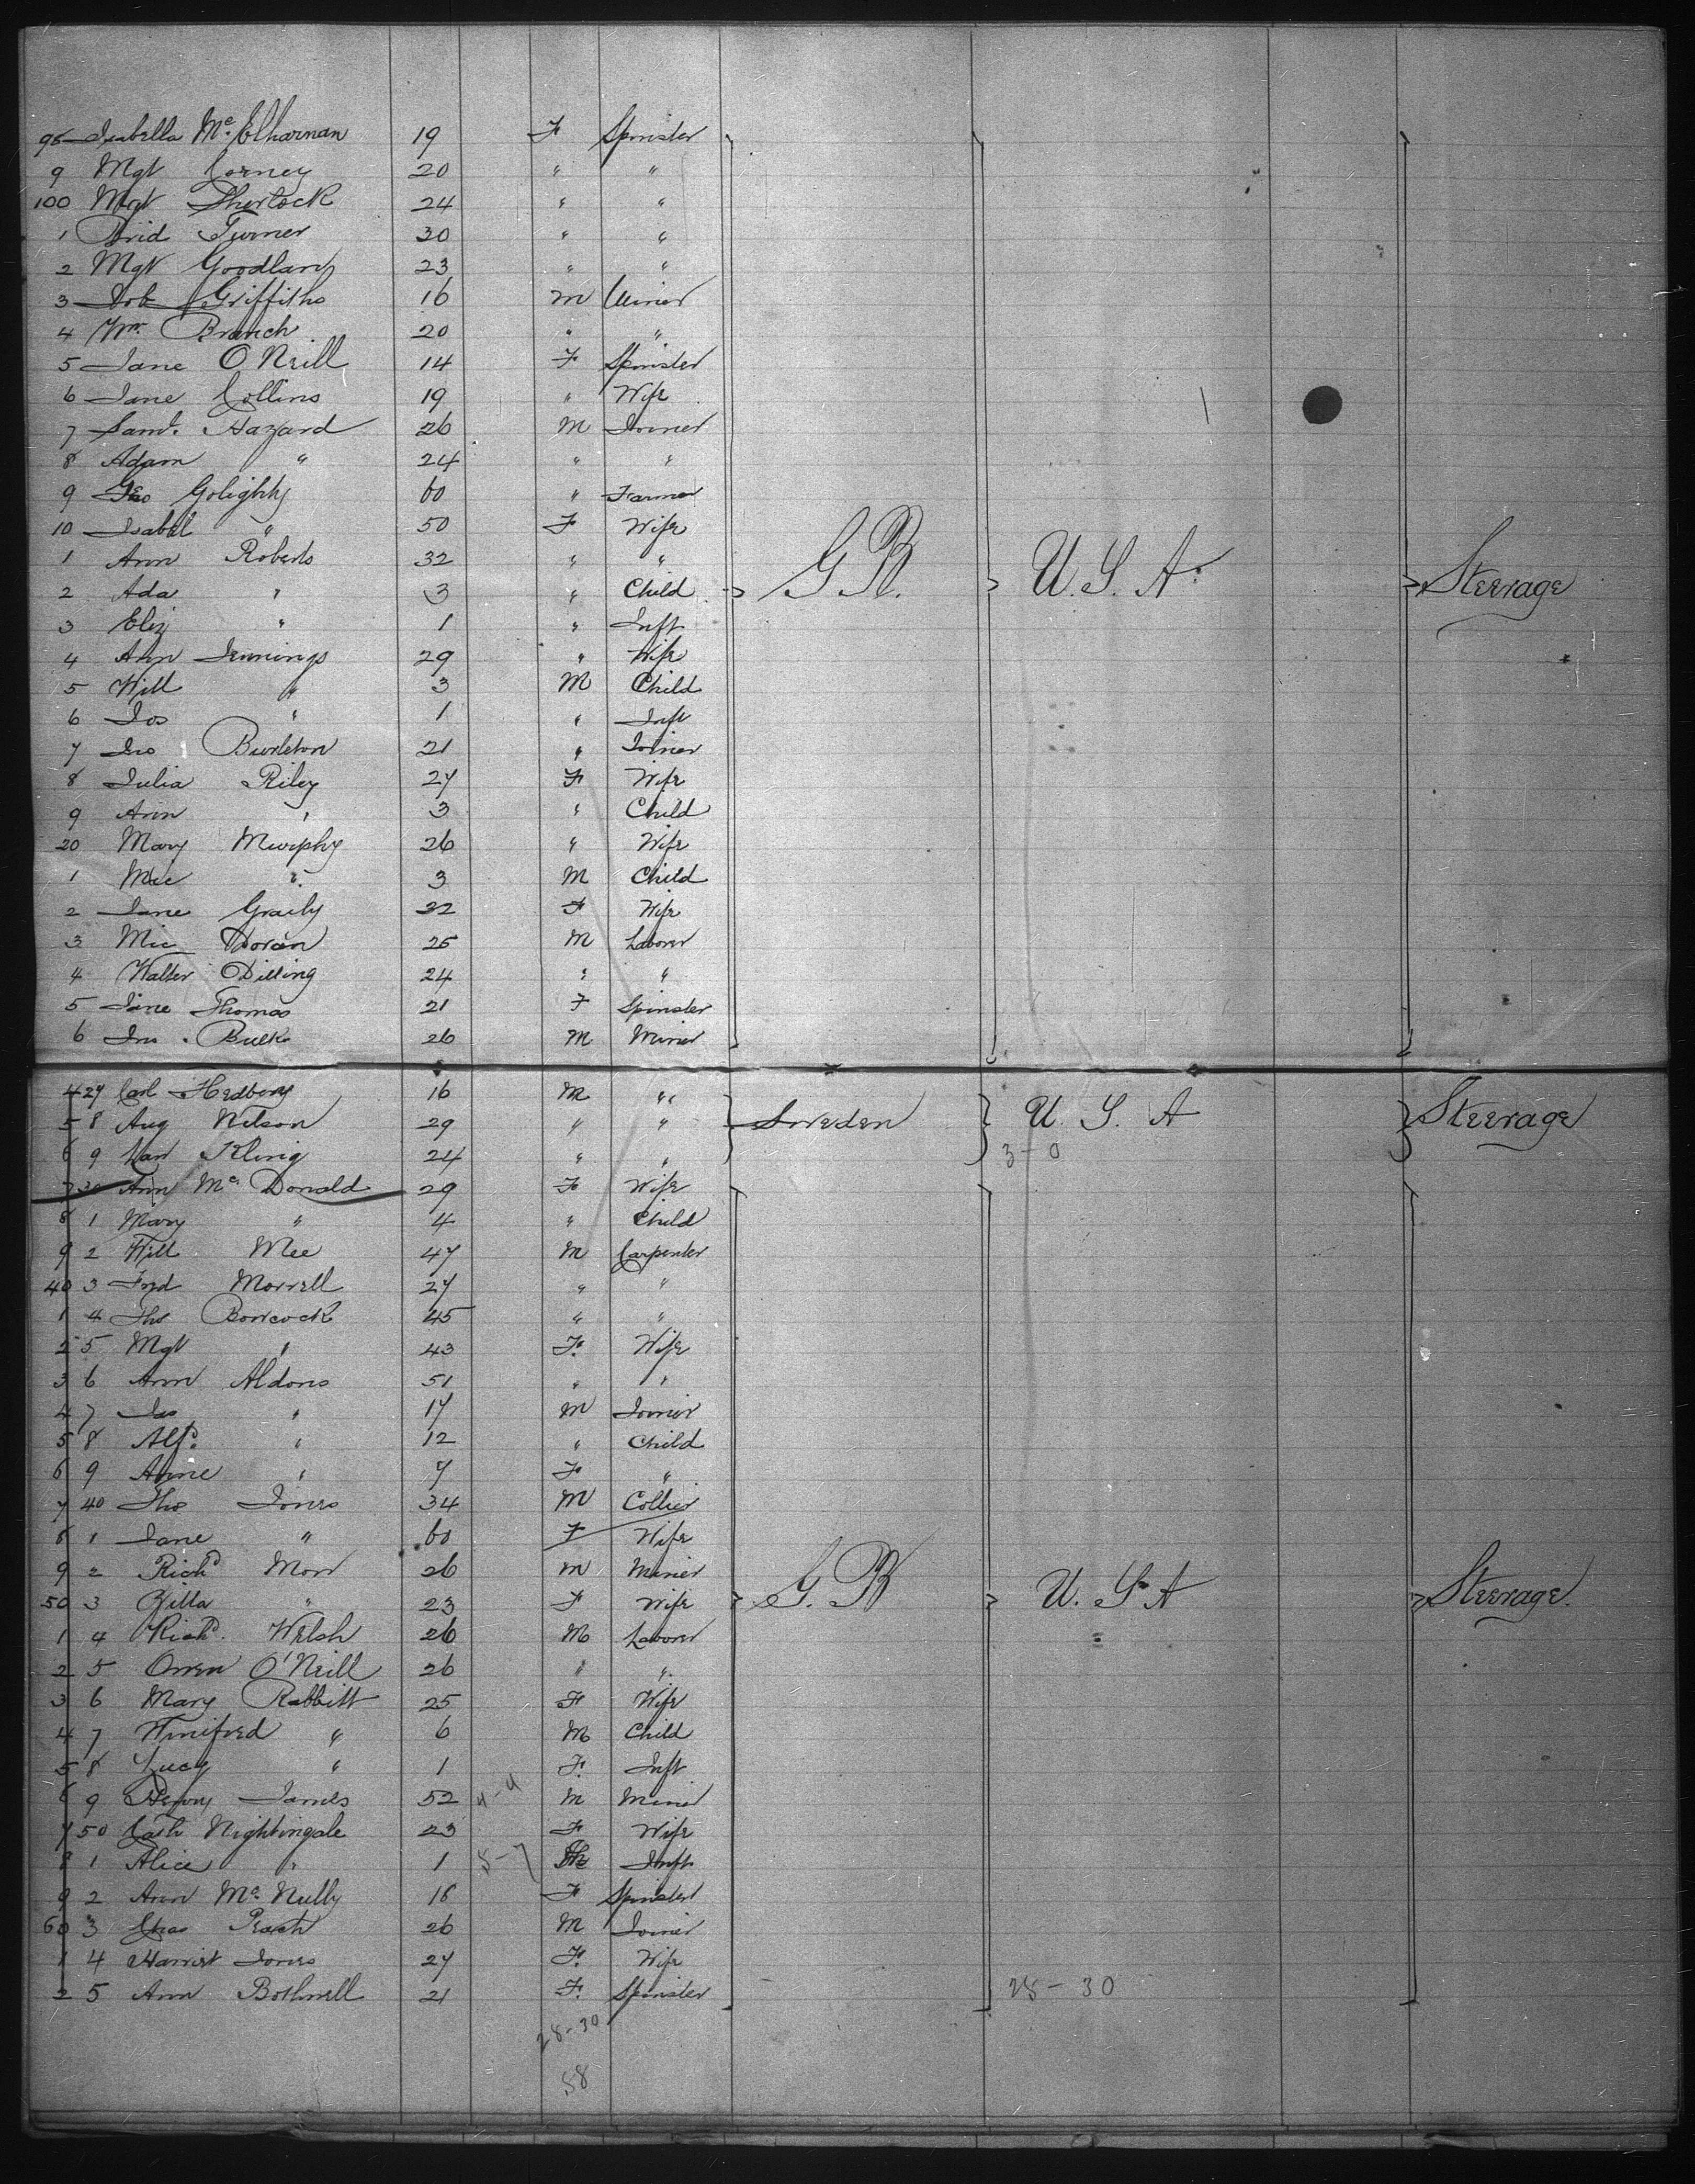 98 Isabella Mc Elharnan 19 F Spinster
9 Mgt Corney 20 " "
100 Mgt Sherlock 24 " "
1 Brid Turner 30 " "
2 Mgt Goodland 23 " "
3 Job Griffiths 16 M Miner
4 Wm. Branch 20 " "
5 Jane O'Neill 14 F Spinster
6 Jane Collins 19 " Wife
7 Saml. Hazard 26 M Joiner
8 Adam " 24 " "
9 Geo Golightly 60 " Farmer
10 Isabel " 50 F Wife
1 Ann Roberts 32 " "
2 Ada " 3 " Child G B. U. S. A. Steerage
3 Eliz " 1 " Inft
4 Ann Jennings 29 " Wife
5 Will " 3 M Child
6 Jos " 1 " Inft
7 Jno Burleton 21 " Joiner
8 Julia Riley 27 F Wife
9 Ann " 3 " Child
20 Mary Murphy 26 " Wife
1 Mic " 3 M Child
2 Jane Graily 22 F Wife
3 Mic Doran 25 M Laborer
4 Walter Dilling 24 " "
5 Jane Thomas 21 F Spinster
6 Jno. Bulk 26 M Miner
4 27 Carl Hedborg 16 M "
5 8 Aug Nilson 29 " " Sweden U. S. A Steerage
6 9 Kling 24 " " 3-0
7 30 Ann Mc Donald 29 F Wife
8 1 Mary " 4 " Child
9 2 Will Mee 47 M Carpenter
40 3 Fred Morrell 27 " "
1 4 Tho Bowcock 45 " "
2 5 Mgt " 43 F. Wife
3 6 Ann Aldons 51 " "
4 7 Jas " 17 M Joiner
5 8 Alfd. " 12 " Child
6 9 Anne " 7 F "
7 40 Tho Jones 34 M Collier
8 1 Jane " 60 F Wife
9 2 Richd Morr 26 M Miner
50 3 Zilla " 23 F Wife G. B U. S. A Steerage.
1 4 Richd. Welsh 26 M Laborer
2 5 Owen O'Neill 26 " "
3 6 Mary Rabbitt 25 F Wife
4 7 Winifred " 6 M Child
5 8 Lucy " 1 F. Inft
6 9 Henry James 52 4-4 M Miner
7 50 Cath Nightingale 23 F Wife
8 1 Alice " 1 5-7 Inft
9 2 Ann Mc Nully 18 F Spinster
60 3 Chas Peach 26 M Joiner
1 4 Harriet Jones 27 F. Wife
2 5 Ann Bothwell 21 F. Spinster 28-30
28-30
58